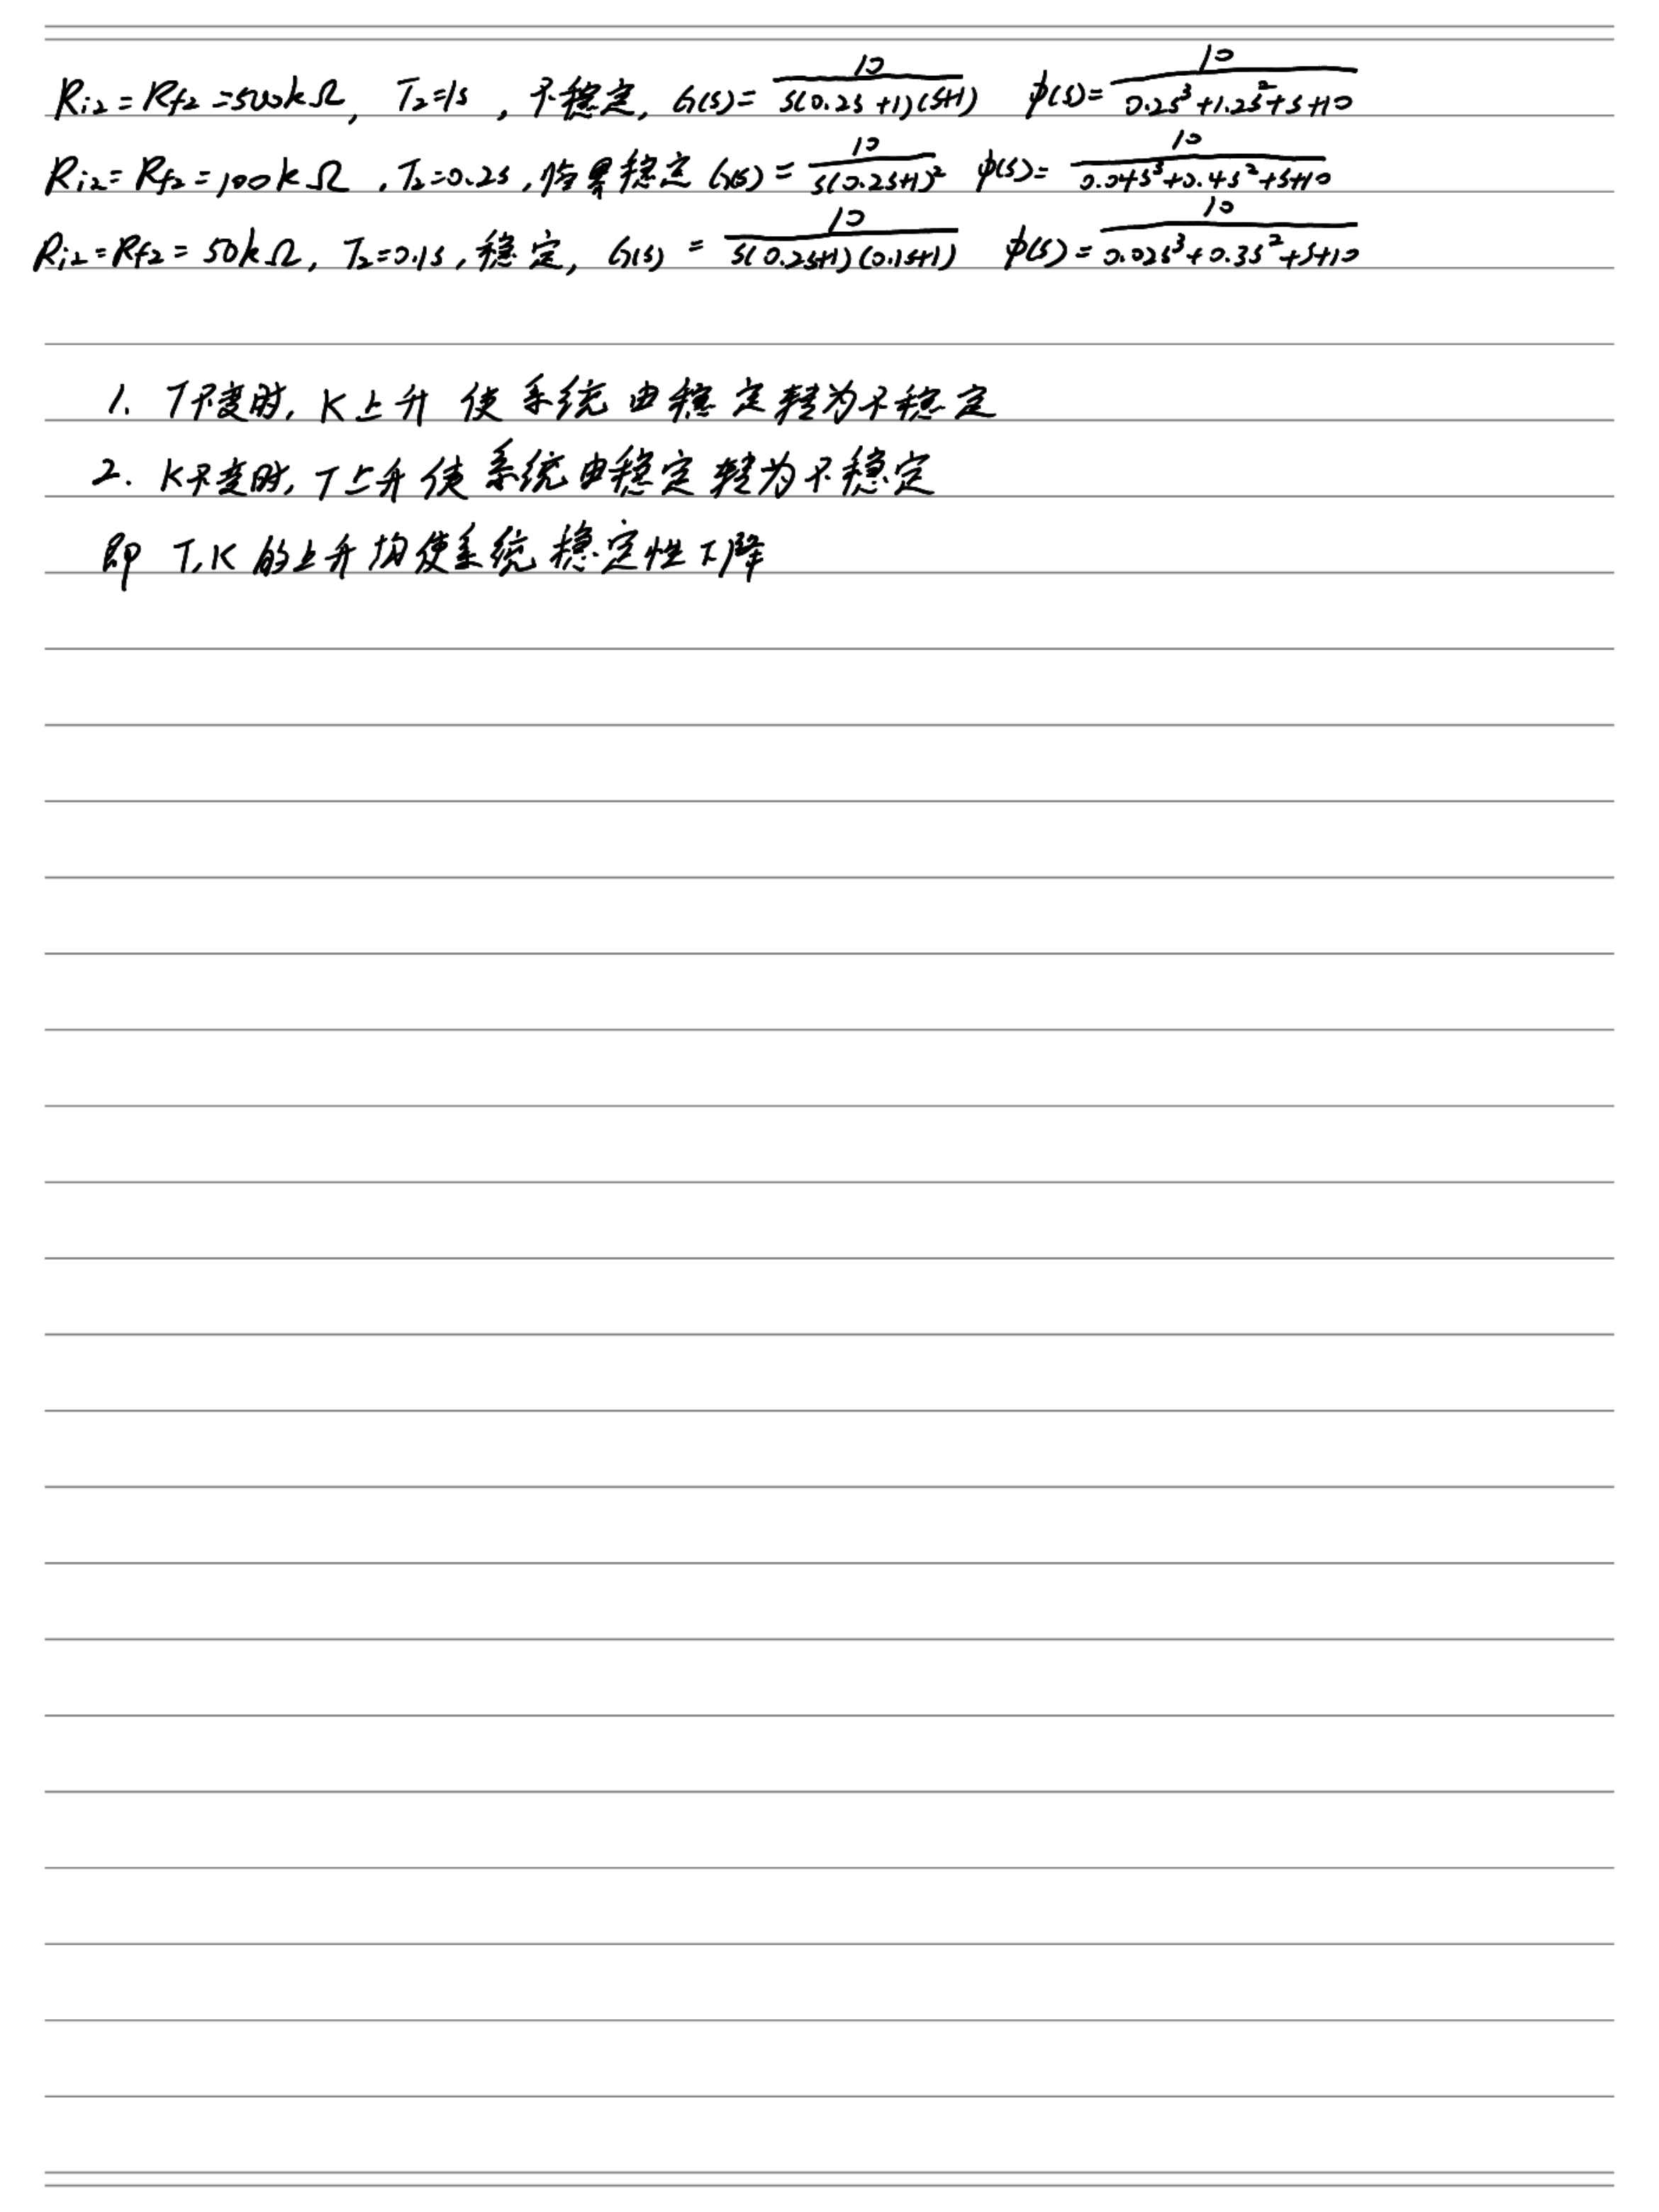 Ri2=Rf2=500kΩ, T2=1s, 不稳定, G(s)=10/s(0.2s+1)(s+1) φ(s)=10/0.2s³+1.2s²+s+10
Ri2=Rf2=100kΩ, T2=0.2s, 临界稳定 G(s)=10/s(0.2s+1)² φ(s)=10/0.04s³+0.4s²+s+10
Ri2=Rf2=50kΩ, T2=0.1s, 稳定, G(s)=10/s(0.2s+1)(0.1s+1) φ(s)=10/0.02s³+0.3s²+s+10
1. T不变时, K上升 使系统由稳定转为不稳定
2. K不变时, T上升使系统由稳定转为不稳定
即 T,K的上升均使系统稳定性下降